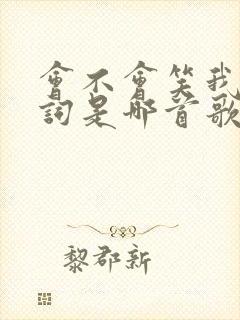 會不會笑我
詞是哪首歌
黎郡新